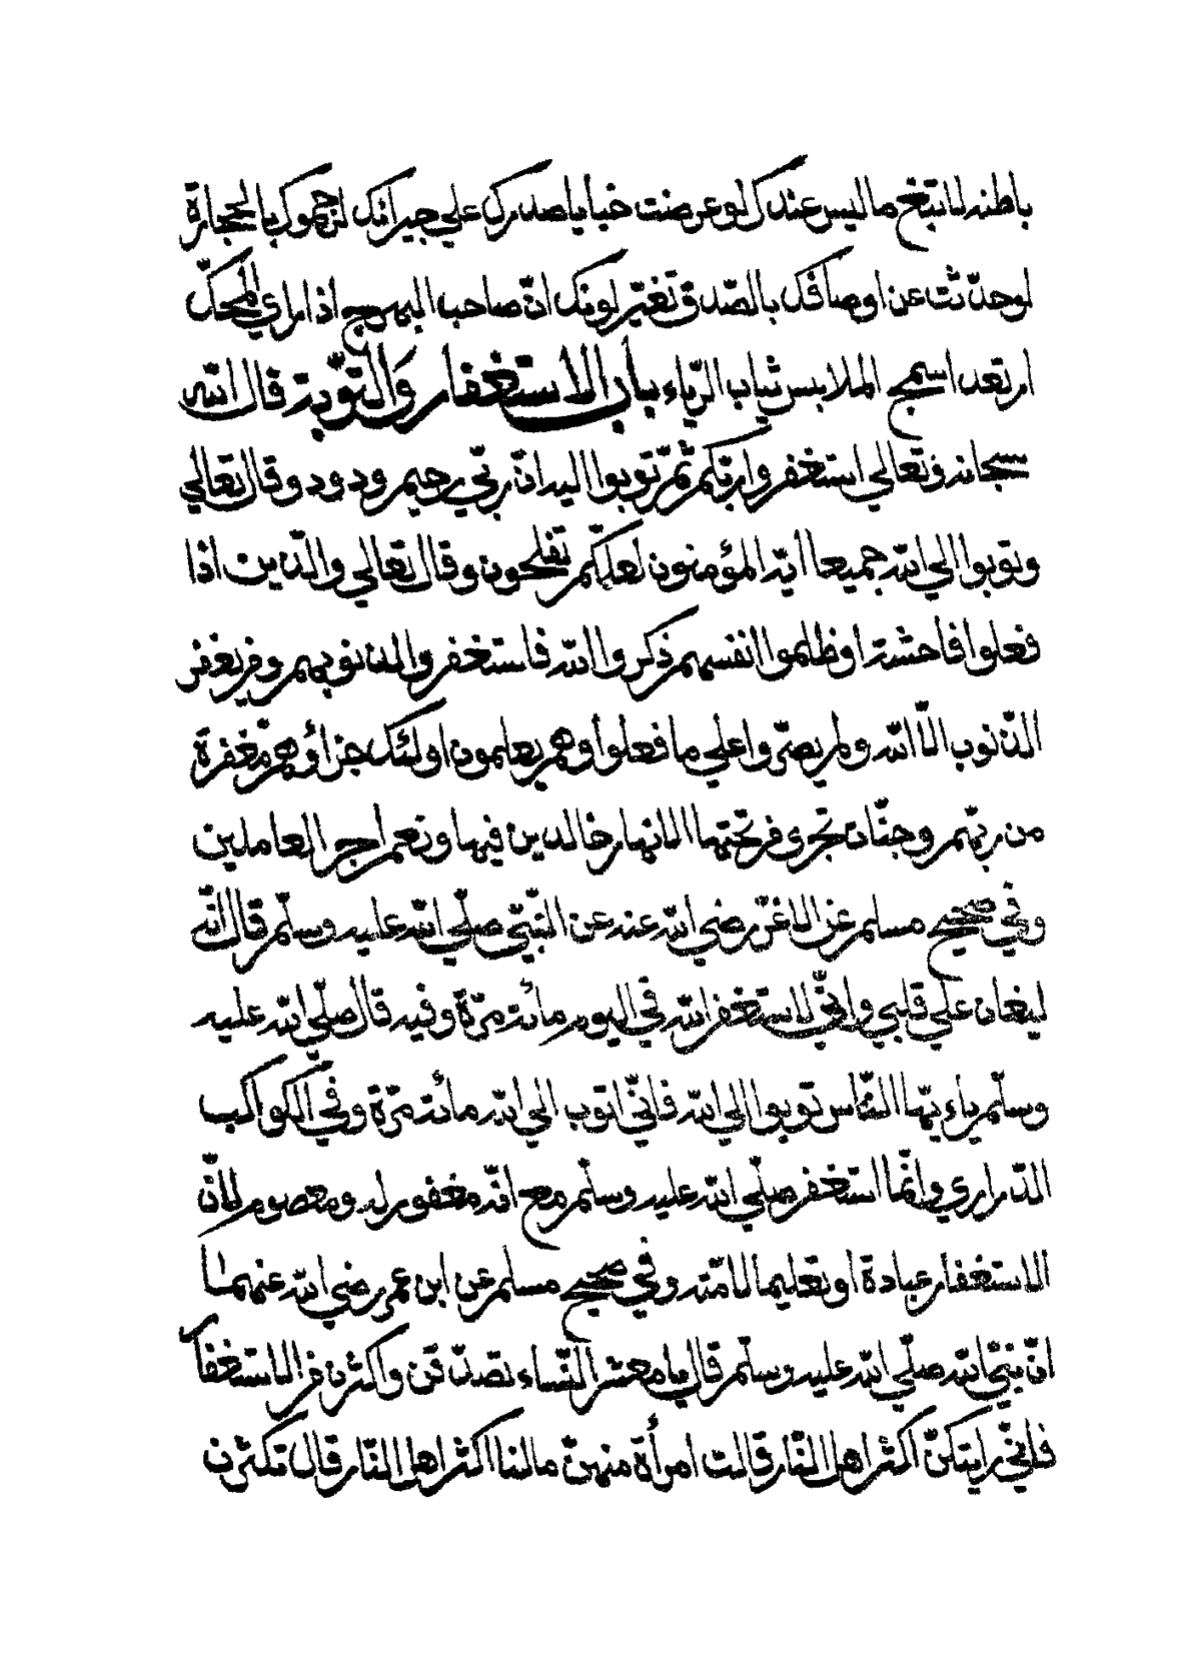 باطنه لا تبتغ ما ليس عندك لو عرضت خبايا صدرك على جيرانك لرجموك بالحجارة
لو حدّثت عن اوصافك بالصّدق تغيّر لونك انّ صاحب البهرج اذا راي المحكّ
ارتعد اسمج الملابس ثياب الرّياء باب الاستغفار والتّوبة قال الله
سبحانه وتعالي استغفروا ربّكم ثمّ توبوا اليه انّ ربّي رحيم ودود وقال تعالي
وتوبوا الي الله جميعا ايّه المؤمنون لعلّكم تفلحون وقال تعالي والّذين اذا
فعلوا فاحشة او ظلموا انفسهم ذكروا الله فاستغفروا لذنوبهم ومن يغفر
الذّنوب الّا الله ولم يصرّوا علي ما فعلوا وهم يعلمون اولئك جزاؤهم مغفرة
من ربّهم وجنّات تجرى من تحتها الانهار خالدين فيها ونعم اجر العاملين
وفي صحيح مسلم عن الاغرّ رضي الله عنه عن النّبيّ صلّي الله عليه وسلّم قال انّه
ليغان علي قلبي وانّي لاستغفر الله في اليوم مائة مرّة وفيه قال صلّي الله عليه
وسلّم ياءيّها النّاس توبوا الي الله فانّي اتوب الي الله مائة مرّة وفي الكواكب
الدّراري وانّما استغفر صلّي الله عليه وسلّم مع انّه مغفور له ومعصوم لانّ
الاستغفار عبادة او تعليما لامّته وفي صحيح مسلم عن ابن عمر رضي الله عنهما
انّ نبيّ الله صلّي الله عليه وسلّم قال يا معشر النّساء تصدّقن واكثرن من الاستغفار
فانّي رايتكنّ اكثر اهل النّار قالت امرأة منهنّ ما لنا اكثر اهل النّار قال تكثرن